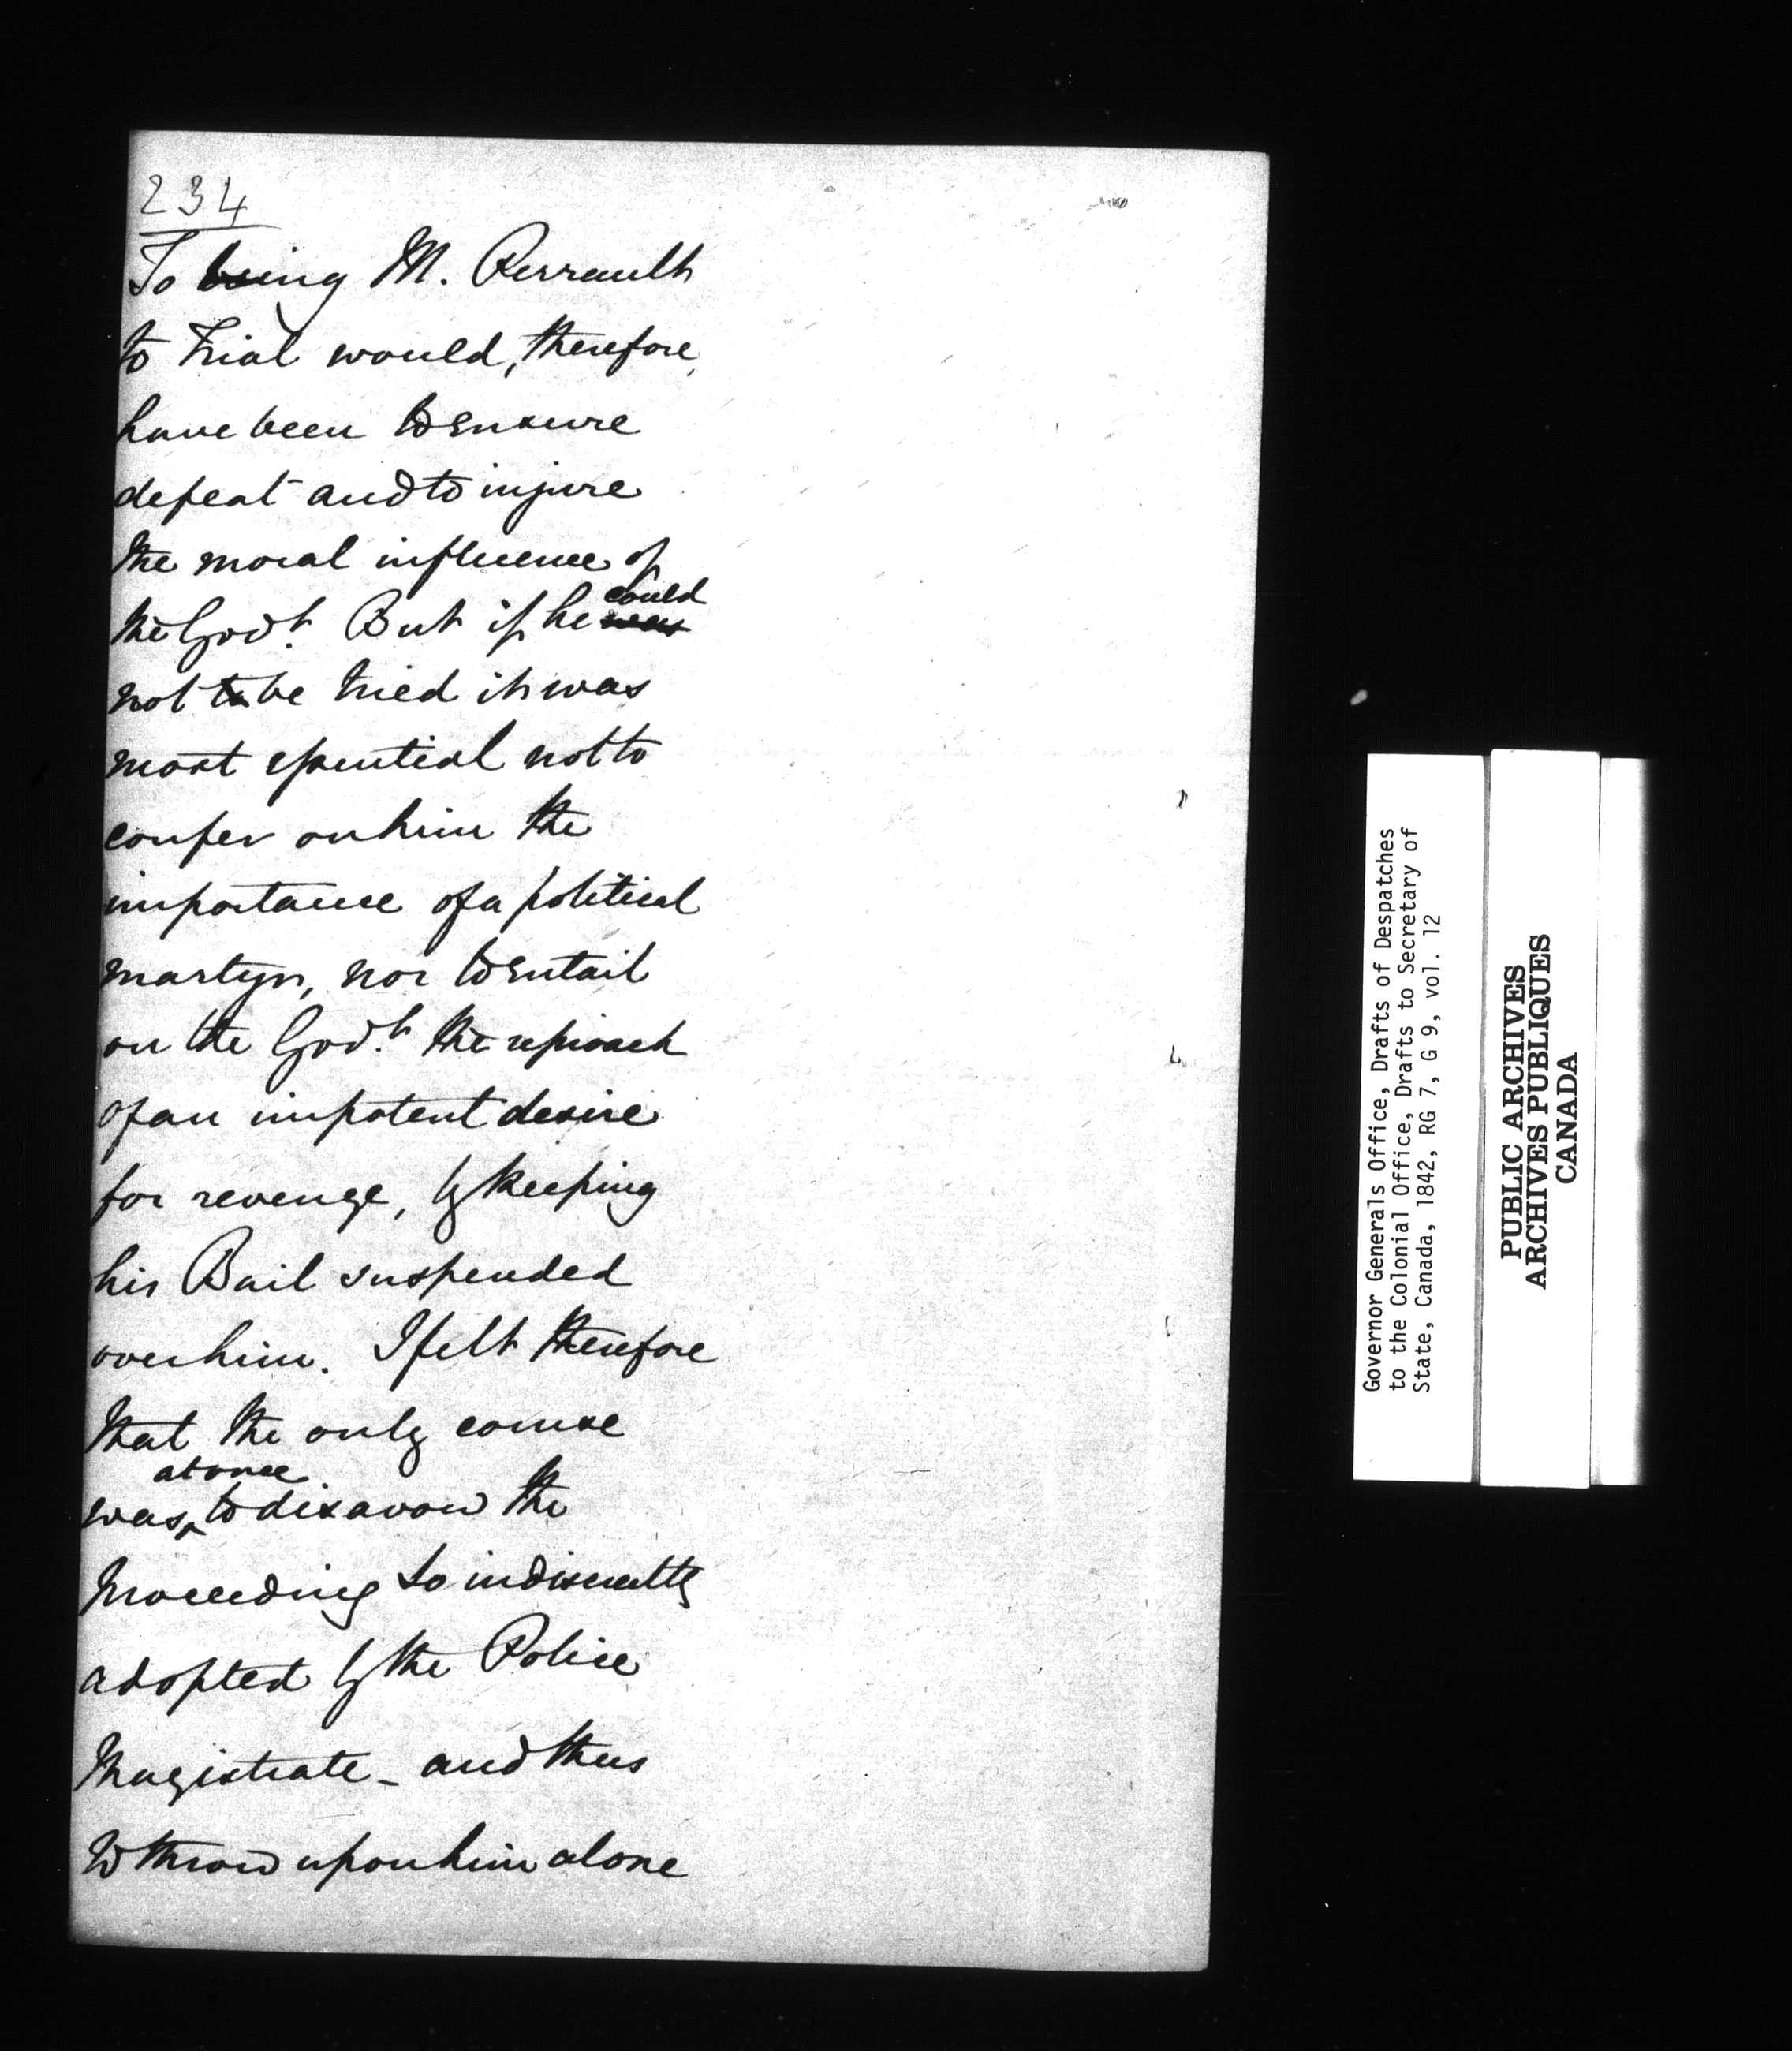 234
To bring M. Perrault
to Trial would, therefore,
have been to ensure
defeat and to injure
the moral influence of
the Govt. But if he was could
not to be tried it was
most essential not to
confer on him the
importance of a political
martyr, nor to entail
on the Govt. the reproach
of an impotent desire
for revenge, by keeping
his Bail suspended
over him. I felt therefore
that the only course
at once
was to disavow the
Proceeding so indiscreetly
adopted by the Police
Magistrate - and thus
to throw upon him alone
Governor Generals Office, Drafts of Despatches
to the Colonial Office, Drafts to Secretary of
State, Canada, 1842, RG 7, G 9, vol. 12
PUBLIC ARCHIVES
ARCHIVES PUBLIQUES
CANADA